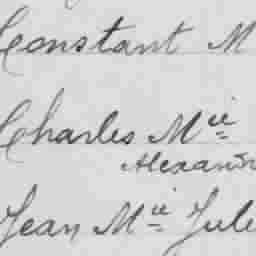 Constant M
Charles Mie
Alexand
Jean Mie Jule